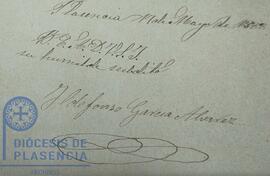 Plasencia 11 de Mayo de
su humilde subdito
Yldefonso Garcia Alvarez
DIÓCESIS DE
PLASENCIA
ARCHIVO